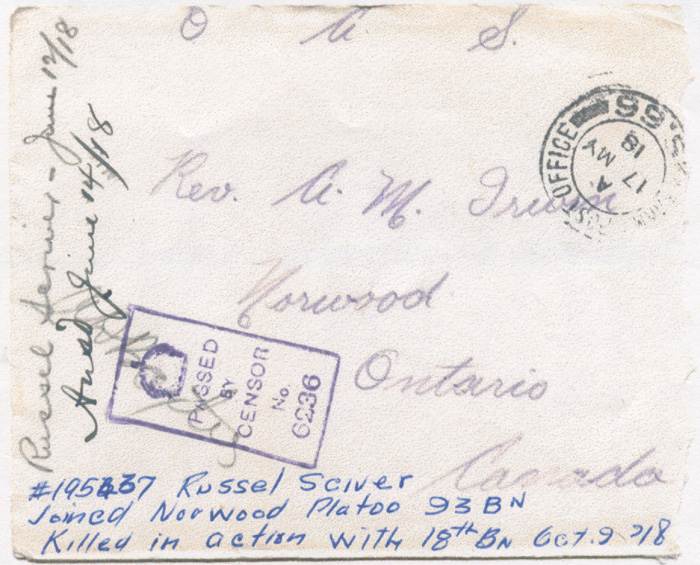 O A. S.
Rev. A. M. Irwin
Norwood
Ontario
Canada
Russel Sciver - June 12/18
Ansd June 14/18
POST OFFICE
S. 66
A
17 MY
18
PASSED
BY
CENSOR
No.
6236
Russel Sciver
Joined Norwood Platoo 93 BN
Killed in action with 18th BN Oct. 9 '18